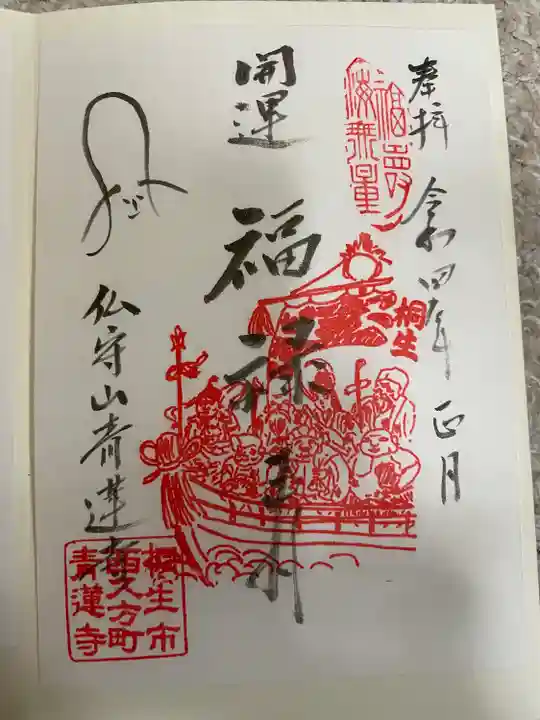 奉拝
令和四年 正月
福壽海無量
桐生
開運 福禄寿
仏守山青蓮寺
桐生市
西久方町
青蓮寺